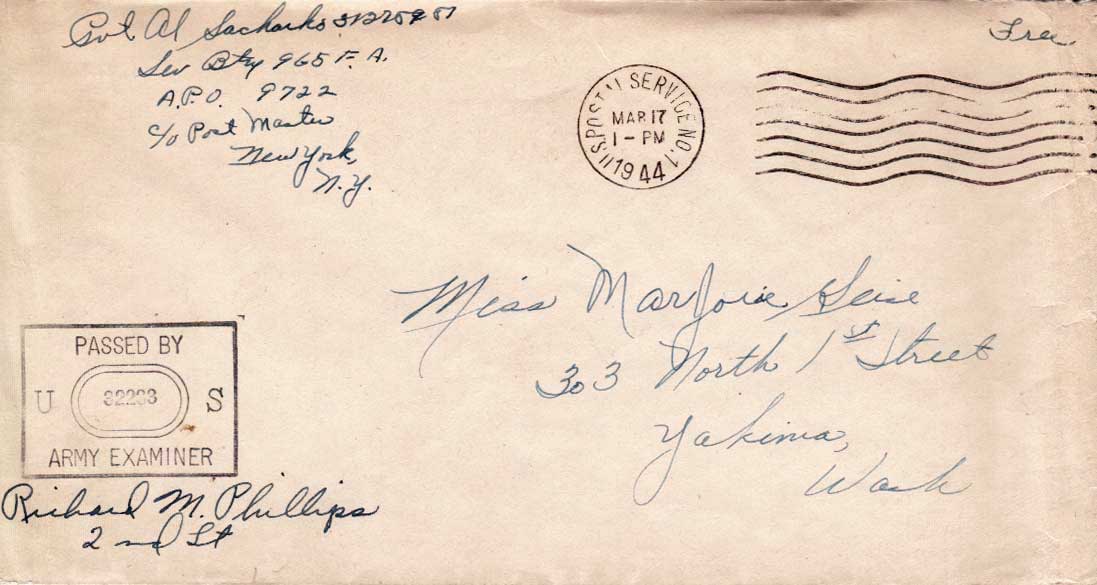 Pvt. Al Sacharko
Ser Btry 965 F. A.
A.P.O. 9722
c/o Post Master
New York,
N.Y.
Free
U.S. POSTAL SERVICE NO. 1
MAR 17
1 - PM
1944
Miss Marjorie Seise
303 North 1st Street
Yakima,
Wash
PASSED BY
U 32233 S
ARMY EXAMINER
Richard M. Phillips
2nd Lt